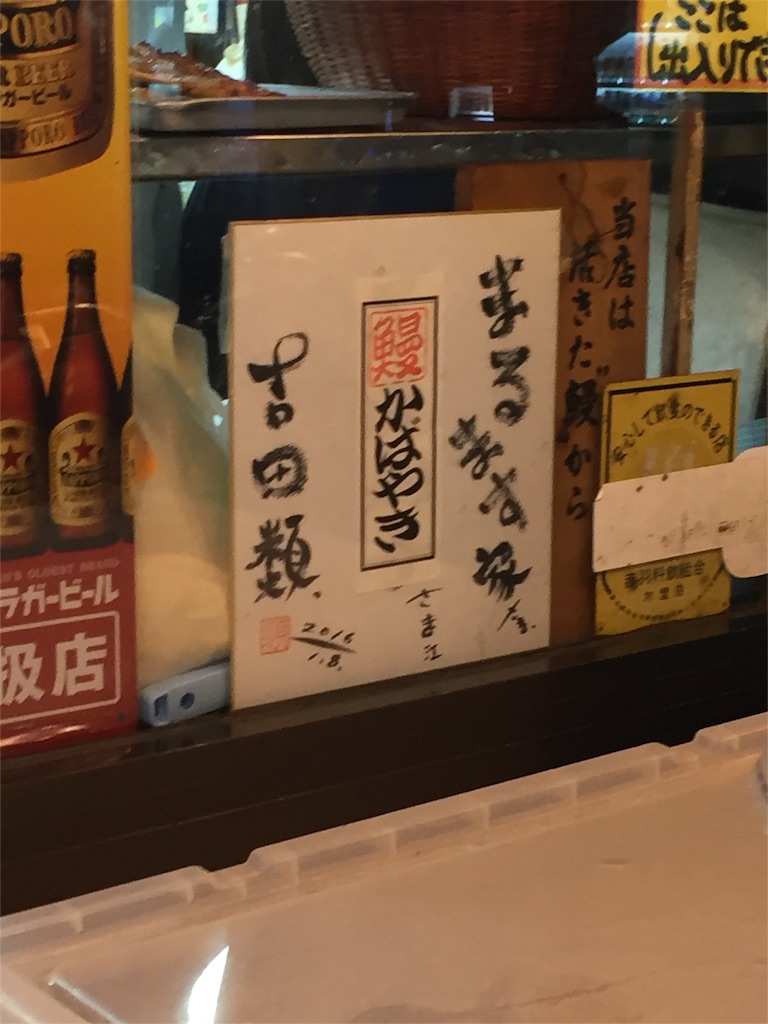 PORO
BEER
ガービール
PPORO
ここは
出入りでき
当店は
活きた鰻から
まるます家
さま江
鰻
かばやき
吉田類
2016
1.8.
安心して飲食のできる店
赤羽料飲組合
加盟店
ラガービール
扱店